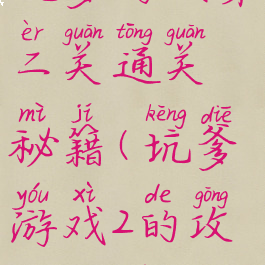 èr guān tōng guān
二关通关
mì jí kēng diē
秘籍(坑爹
yóu xì de gōng
游戏2的攻